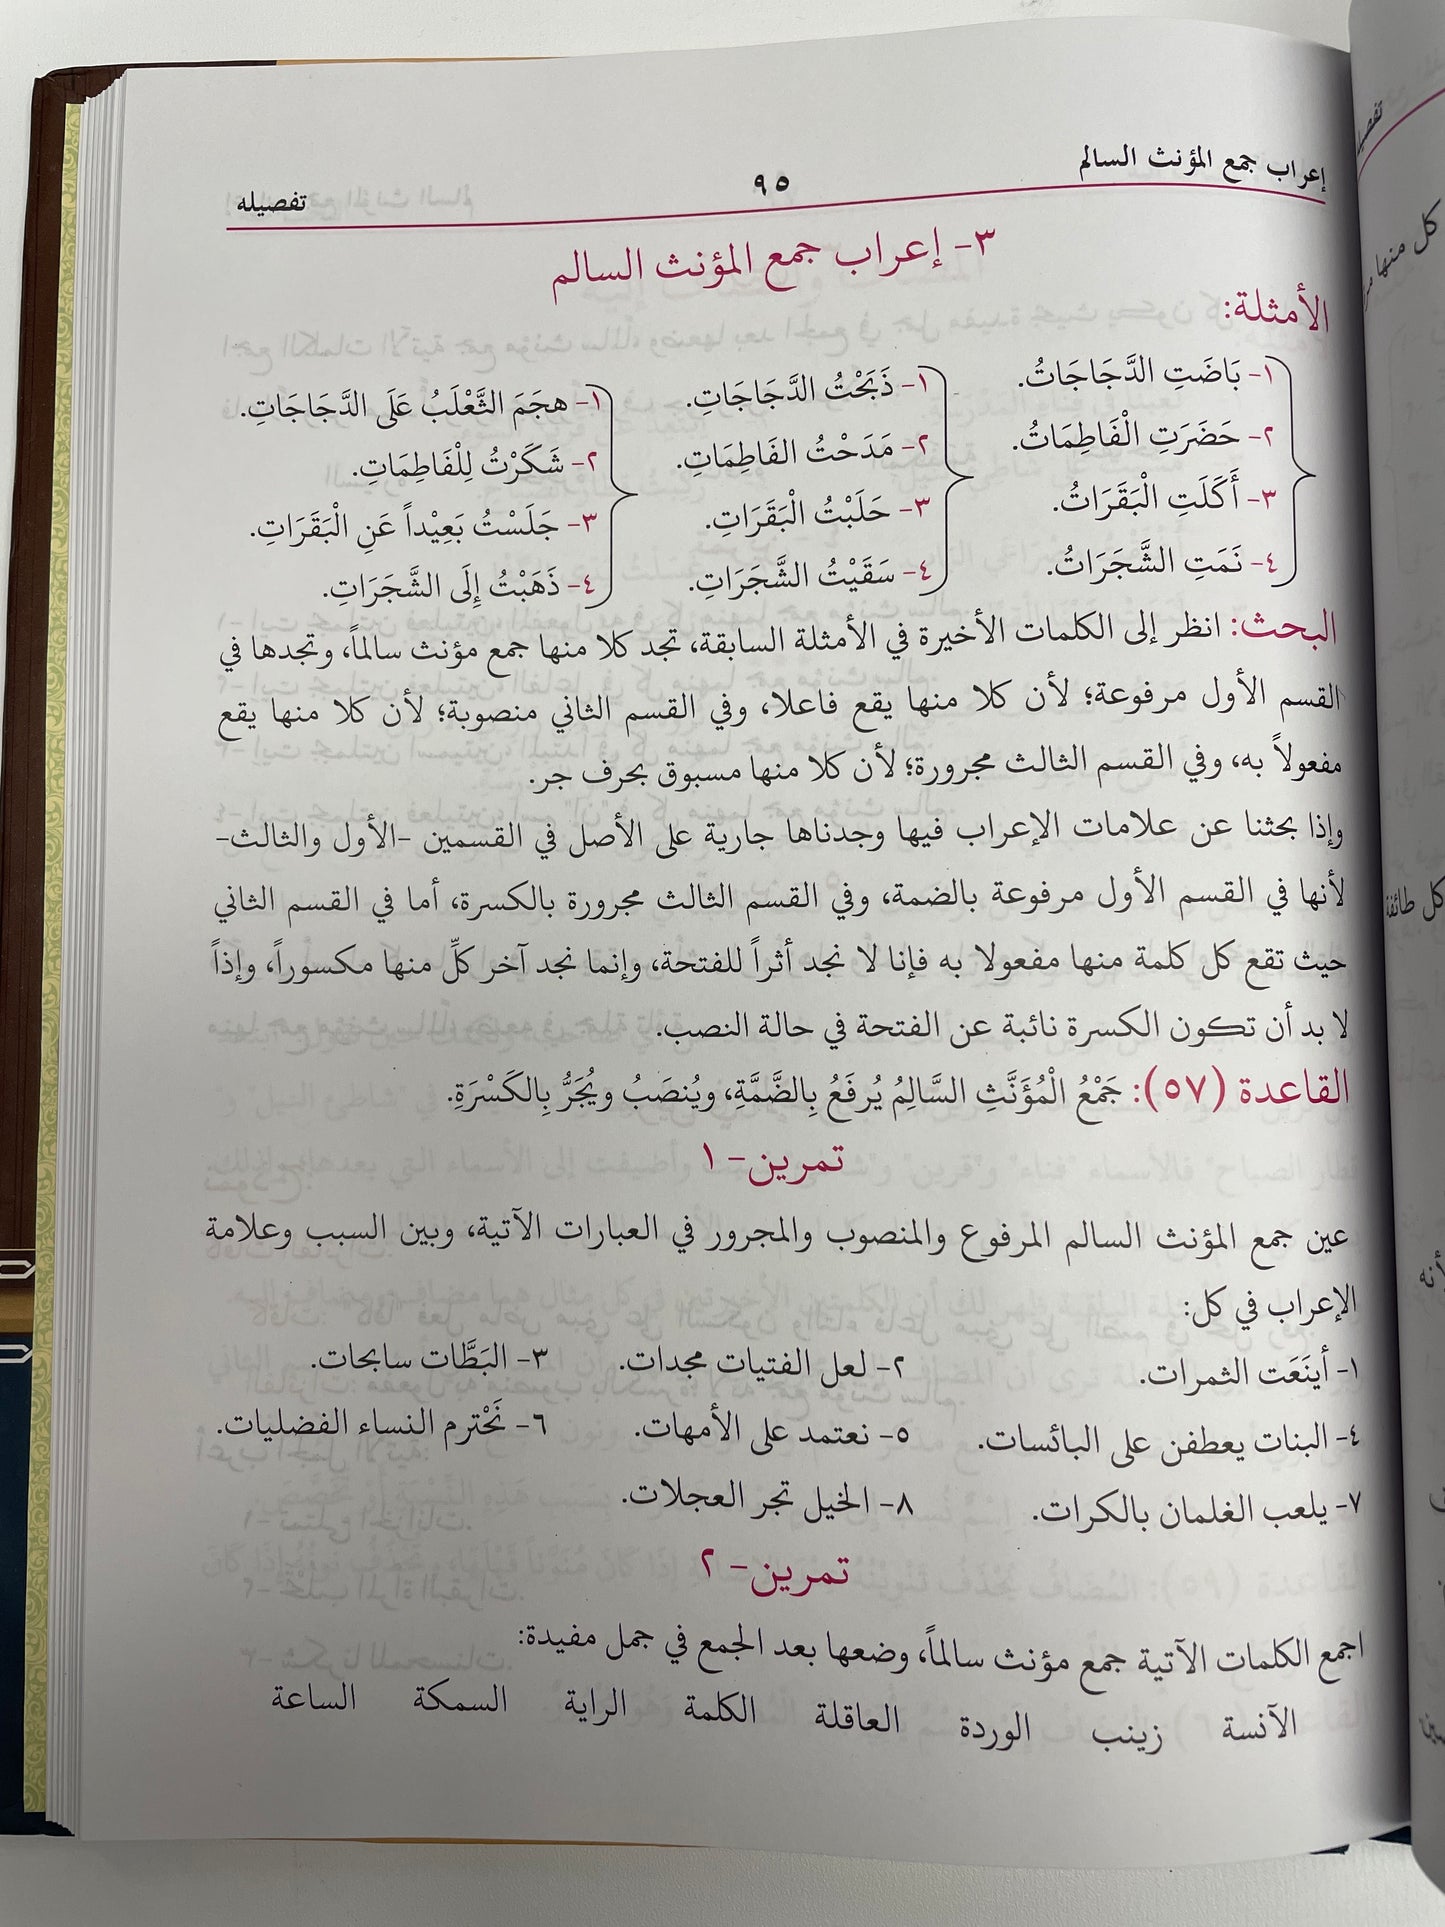 إعراب جمع المؤنث السالم ٩٥ تفصيله
٣- إعراب جمع المؤنث السالم
الأمثلة:
١- بَاضَتِ الدَّجَاجَاتُ. ١- ذَبَحْتُ الدَّجَاجَاتِ. ١- هجَمَ الثَّعْلَبُ عَلَى الدَّجَاجَاتِ.
٢- حَضَرَتِ الْفَاطِمَاتُ. ٢- مَدَحْتُ الفَاطِمَاتِ. ٢- شَكَرْتُ لِلْفَاطِمَاتِ.
٣- أَكَلَتِ الْبَقَرَاتُ. ٣- حَلَبْتُ الْبَقَرَاتِ. ٣- جَلَسْتُ بَعِيْداً عَنِ الْبَقَرَاتِ.
٤- نَمَتِ الشَّجَرَاتُ. ٤- سَقَيْتُ الشَّجَرَاتِ. ٤- ذَهَبْتُ إِلَى الشَّجَرَاتِ.
البحث: انظر إلى الكلمات الأخيرة في الأمثلة السابقة، تجد كلا منها جمع مؤنث سالماً، وتجدها في
القسم الأول مرفوعة؛ لأن كلا منها يقع فاعلا، وفي القسم الثاني منصوبة؛ لأن كلا منها يقع
مفعولاً به، وفي القسم الثالث مجرورة؛ لأن كلا منها مسبوق بحرف جر.
وإذا بحثنا عن علامات الإعراب فيها وجدناها جارية على الأصل في القسمين -الأول والثالث-
لأنها في القسم الأول مرفوعة بالضمة، وفي القسم الثالث مجرورة بالكسرة، أما في القسم الثاني
حيث تقع كل كلمة منها مفعولا به فإنا لا نجد أثراً للفتحة، وإنما نجد آخر كلٍّ منها مكسوراً، وإذاً
لا بد أن تكون الكسرة نائبة عن الفتحة في حالة النصب.
القاعدة (٥٧): جَمْعُ الْمُؤَنَّثِ السَّالِمُ يُرفَعُ بِالضَّمَّةِ، ويُنصَبُ ويُجَرُّ بِالكَسْرَةِ.
تمرين- ١
عين جمع المؤنث السالم المرفوع والمنصوب والمجرور في العبارات الآتية، وبين السبب وعلامة
الإعراب في كل:
١- أينَعَت الثمرات. ٢- لعل الفتيات مجدات. ٣- البَطَّات سابحات.
٤- البنات يعطفن على البائسات. ٥- نعتمد على الأمهات. ٦- نَحْترم النساء الفضليات.
٧- يلعب الغلمان بالكرات. ٨- الخيل تجر العجلات.
تمرين- ٢
اجمع الكلمات الآتية جمع مؤنث سالماً، وضعها بعد الجمع في جمل مفيدة:
الآنسة زينب الوردة العاقلة الكلمة الراية السمكة الساعة
كل منها
كل طائفة